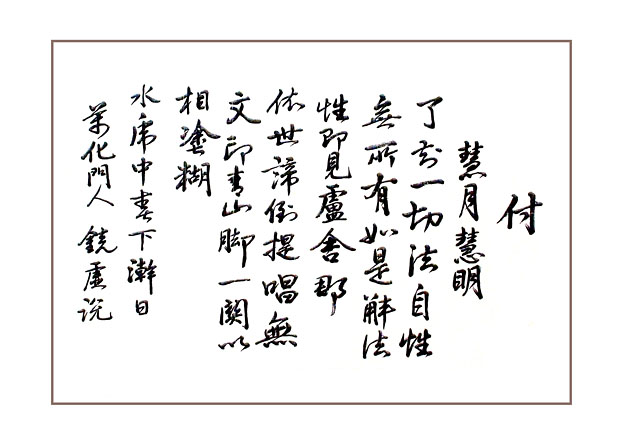 付
慧月慧明
了知一切法自性
無所有如是解法
性即見盧舍那
依世諦倒提唱無
文印青山脚一關以
相塗糊
水虎中春下澣日
萬化門人 鏡虛説